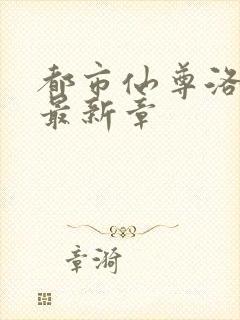 都市仙尊洛
最新章
章漪